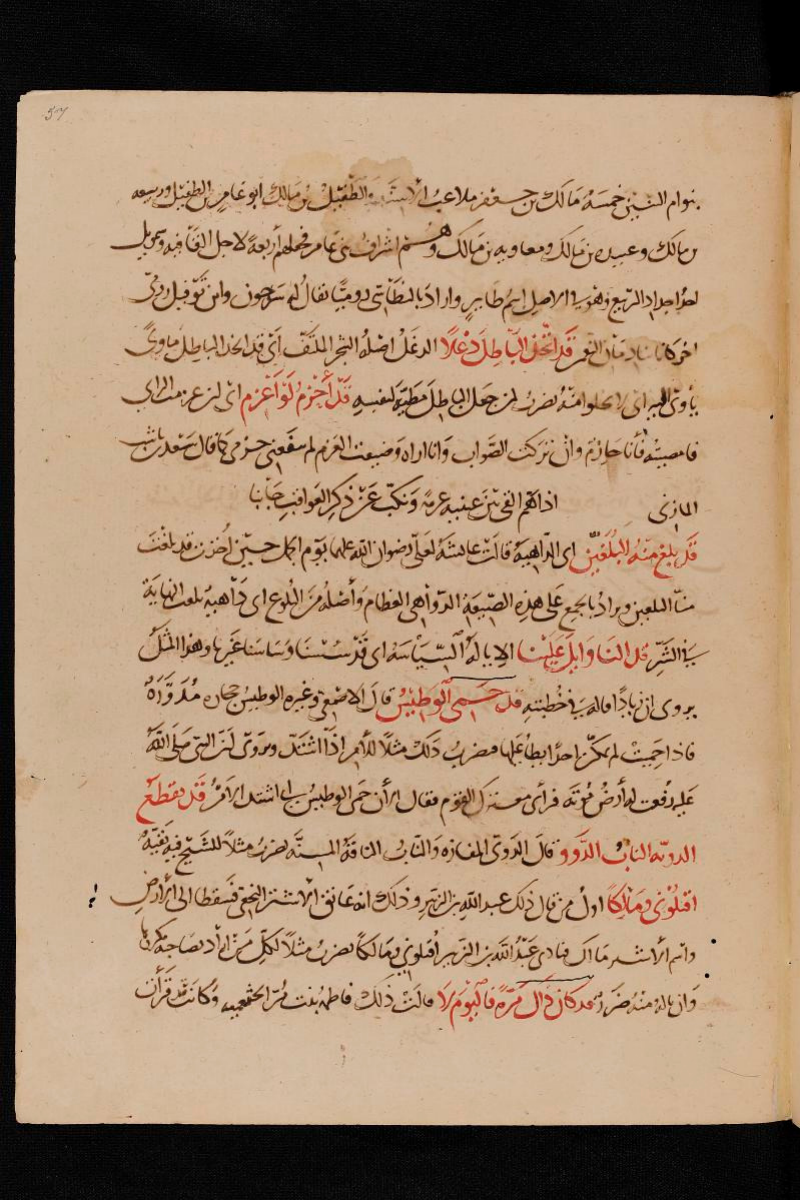 57
بنو ام البنين خمسة مالك بن جعفر ملاعب الاسنة والطفيل بن مالك ابو عامر بن الطفيل وربيعه
بن مالك وعبيده بن مالك ومعاويه بن مالك وهم اشراف بنى عامر فجعلهم أربعةً لاجل القافيه وسمويل
احد اجداد الربيع وهو فى الاصل اسم طاير واراد بالنطاسى روميًا يقال له سرجون وابن نوفيل رومى
اخر كانا ينادمان النعمن قد اتخذ الباطل دغلاً الدغل اصله الشجر الملتف اى قد اتخذ الباطل ماوىً
يأوى اليه اى لا يخلوا منه يضرب لمن جعل الباطل مطية لنفسه قد أحزم لو أعزم اى لن عزمت الراى
فامضيته فأنا حازم وان تركت الصواب وانا اراه وضيعت العزم لم ينفعنى حزمى كما قال سعد بن ناشب
المازنى اذا هم القى بين عينيه عزمه ونكب عن ذكر العواقب جانبا
قد بلغ منه البُلَغين اى الداهية قالت عائشة لعلى رضوان الله عليهما يوم الجمل حين أخذت قد بلغت
منا البلغين ويراد بالجمع على هذه الصيغة الدواهى العظام وأصله من البلوغ اى داهية بلغت النهاية
فى الشر قد النا وايل علينا الايالة السياسة اى قد سسنا وساسنا غيرنا وهذا المثل
يروى ان زيادًا قاله فى خطبته قد حمى الوطيس قال الاصمعى وغيره الوطيس حجارة مُدَوَّرة
فاذا حميت لم يمكن احدا يطأ عليها فيضرب ذلك مثلاً للأمر اذا اشتد ويروى أن النبى صلى الله
عليه رفعت له أرض مؤته فرأى معترك القوم فقال الأن حمى الوطيس اى اشتد الامر قد يقطع
الدوية الناب الدوو قال الدوى المفازه والناب الناقة المسنة يضرب مثلاً للشيخ فيه بقية
اقتلونى ومالكا اول من قال ذلك عبد الله بن الزبير وذلك انه عانق الاشتر النخعى فسقطا الى الارض
واسم الاشتر مالك فنادى عبد الله بن الزبير اقتلونى ومالكًا يضرب مثلاً لكل من اراد بصاحبه مكروها
وان ناله منه ضرر قد كان ذاك مرةً فاليوم لا قالت ذلك فاطمة بنت مر الخثعميه وكانت قد قرأن